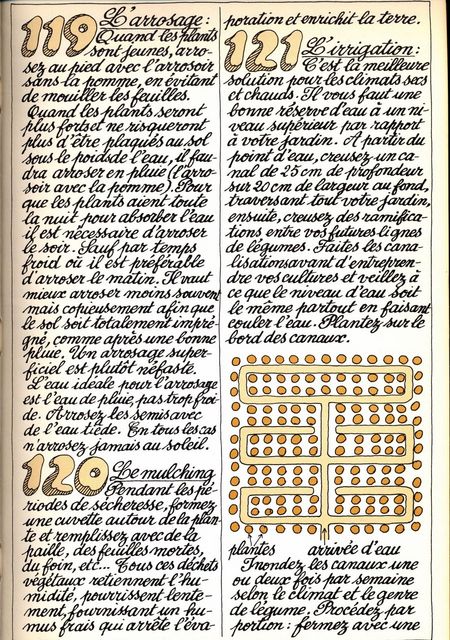 119 L'arrosage:
Quand les plants
sont jeunes, arro-
sez au pied avec l'arrosoir
sans la pomme, en évitant
de mouiller les feuilles.
Quand les plants seront
plus forts et ne risqueront
plus d'être plaqués au sol
sous le poids de l'eau, il fau-
dra arroser en pluie (l'arro-
soir avec la pomme). Pour
que les plants aient toute
la nuit pour absorber l'eau
il est nécessaire d'arroser
le soir. Sauf par temps
froid où il est préférable
d'arroser le matin. Il vaut
mieux arroser moins souvent
mais copieusement afin que
le sol soit totalement impré-
gné, comme après une bonne
pluie. Un arrosage super-
ficiel est plutôt néfaste.
L'eau idéale pour l'arrosage
est l'eau de pluie, pas trop froi-
de. Arrosez les semis avec
de l'eau tiède. En tous les cas
n'arrosez jamais au soleil.
120 Le mulching
Pendant les pé-
riodes de sécheresse, formez
une cuvette autour de la plan-
te et remplissez avec de la
paille, des feuilles mortes,
du foin, etc... Tous ces déchets
végétaux retiennent l'hu-
midité, pourrissent lente-
ment, fournissant un hu-
mus frais qui arrête l'éva-
poration et enrichit la terre.
121 L'irrigation:
C'est la meilleure
solution pour les climats secs
et chauds. Il vous faut une
bonne réserve d'eau à un ni-
veau supérieur par rapport
à votre jardin. A partir du
point d'eau, creusez un ca-
nal de 25 cm de profondeur
sur 20 cm de largeur au fond,
traversant tout votre jardin,
ensuite, creusez des ramifica-
tions entre vos futures lignes
de légumes. Faites les cana-
lisations avant d'entrepren-
dre vos cultures et veillez à
ce que le niveau d'eau soit
le même partout en faisant
couler l'eau. Plantez sur le
bord des canaux.
plantes arrivée d'eau
Inondez les canaux une
ou deux fois par semaine
selon le climat et le genre
de légume. Procédez par
portion: fermez avec une